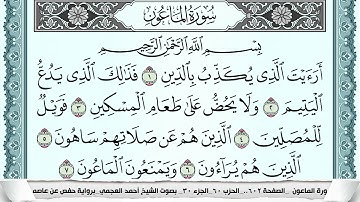 سُورَةُ الْمَاعُونِ
بِسْمِ اللَّهِ الرَّحْمَٰنِ الرَّحِيمِ
أَرَءَيْتَ الَّذِي يُكَذِّبُ بِالدِّينِ ١ فَذَٰلِكَ الَّذِي يَدُعُّ
الْيَتِيمَ ٢ وَلَا يَحُضُّ عَلَىٰ طَعَامِ الْمِسْكِينِ ٣ فَوَيْلٌ
لِّلْمُصَلِّينَ ٤ الَّذِينَ هُمْ عَن صَلَاتِهِمْ سَاهُونَ ٥
الَّذِينَ هُمْ يُرَاءُونَ ٦ وَيَمْنَعُونَ الْمَاعُونَ ٧
ورة الماعون .. الصفحة ٦٠٢ .. الحزب ٦٠ .. الجزء ٣٠ .. بصوت الشيخ أحمد العجمي .. برواية حفص عن عاصم